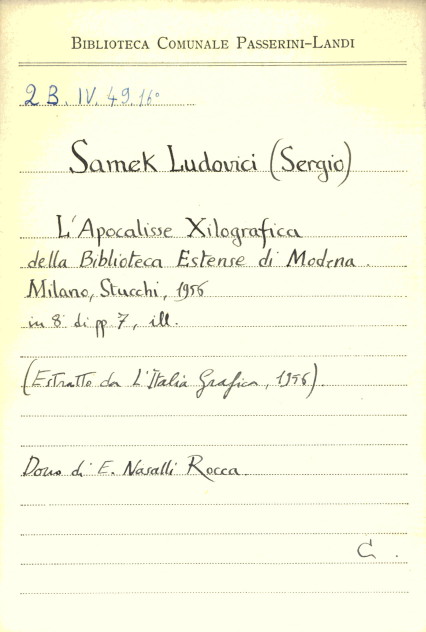 BIBLIOTECA COMUNALE PASSERINI-LANDI
2B. IV. 49. 16°
Samek Ludovici (Sergio)
L'Apocalisse Xilografica
della Biblioteca Estense di Modena.
Milano, Stucchi, 1956
in 8° di pp 7, ill.
(Estratto da L'Italia Grafica, 1956).
Dono di E. Nasalli Rocca.
C.